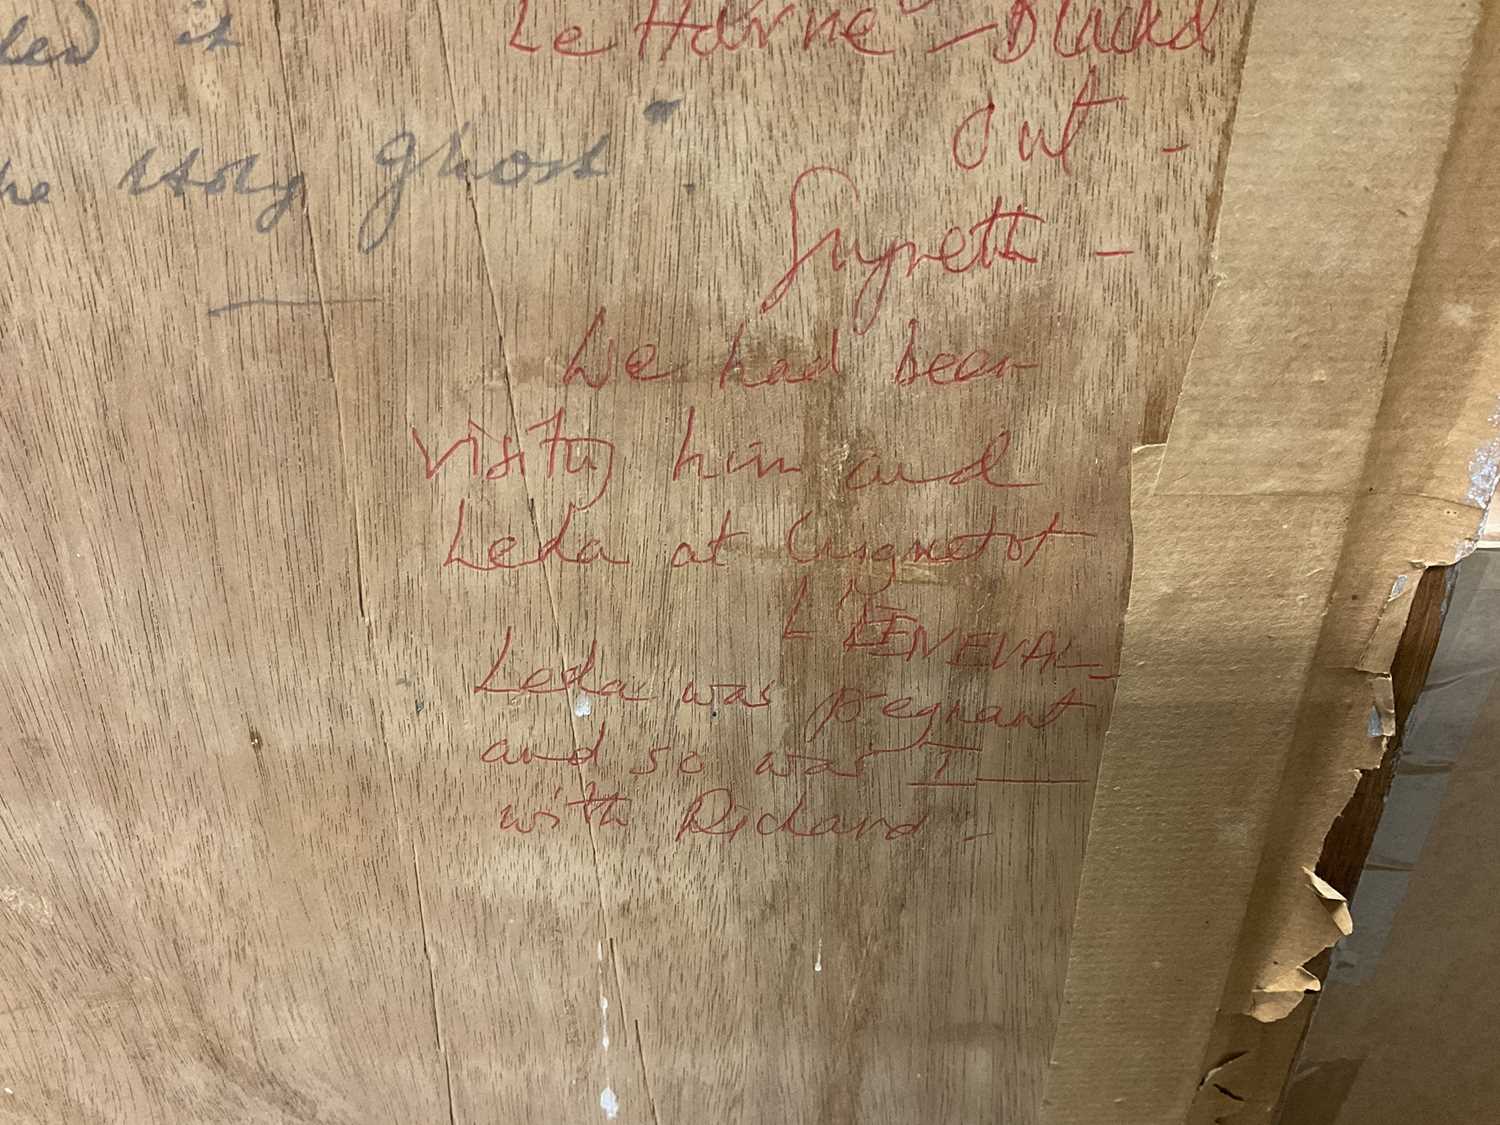 it
Le Havre - Blackd
out -
he Holy Ghost".
We had been
visiting him and
Leda at Cuignetot
L'ENEVAL
Leda was pregnant
and so was I
with Richard -